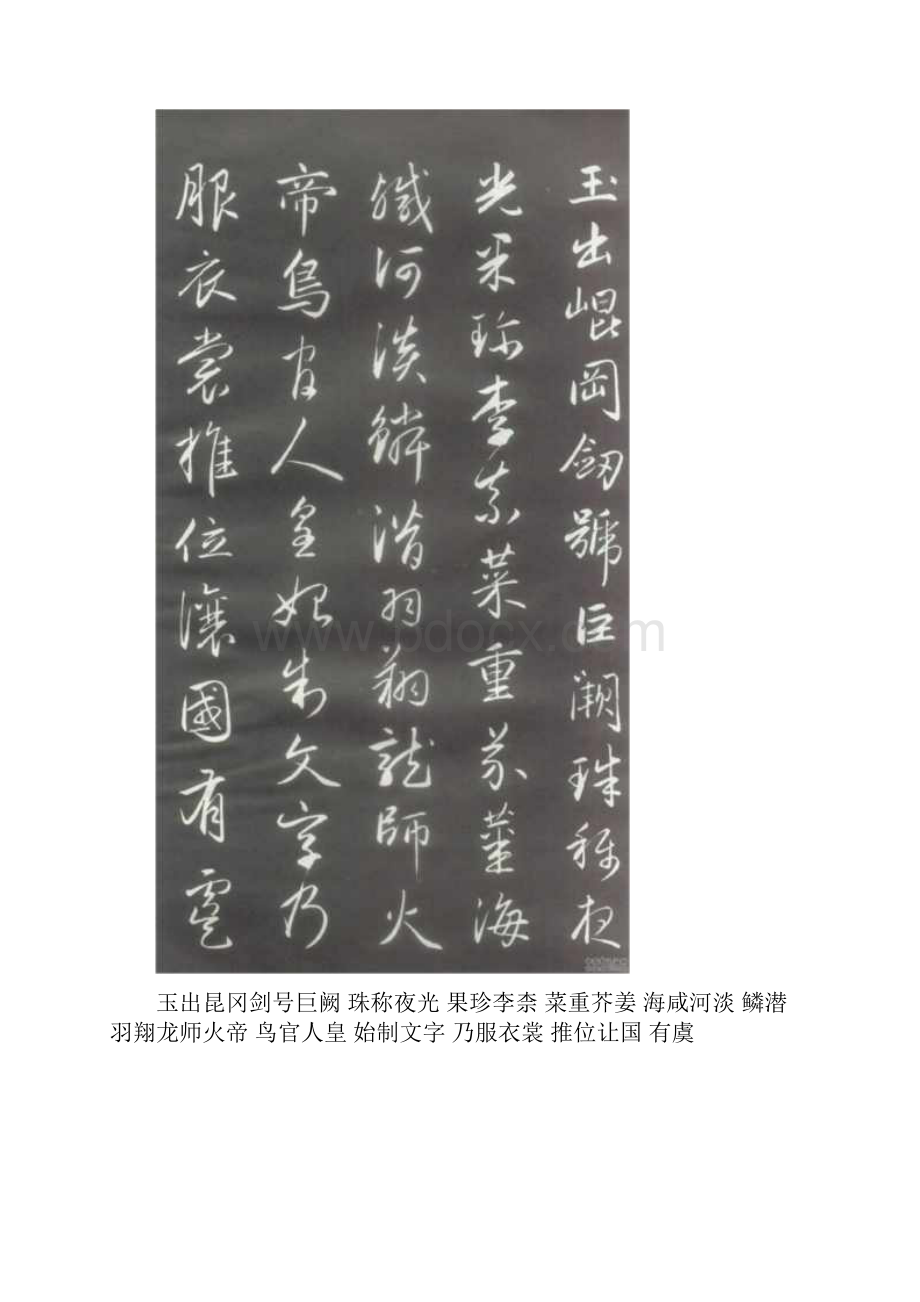 玉出崐岡劔號巨闕珠稱夜
光果珍李柰菜重芥薑海
鹹河淡鱗潛羽翔龍師火
帝鳥官人皇始制文字乃
服衣裳推位讓國有虞
www.bdocx.com
玉出昆冈剑号巨阙 珠称夜光 果珍李柰 菜重芥姜 海咸河淡 鳞潜
羽翔龙师火帝 鸟官人皇 始制文字 乃服衣裳 推位让国 有虞